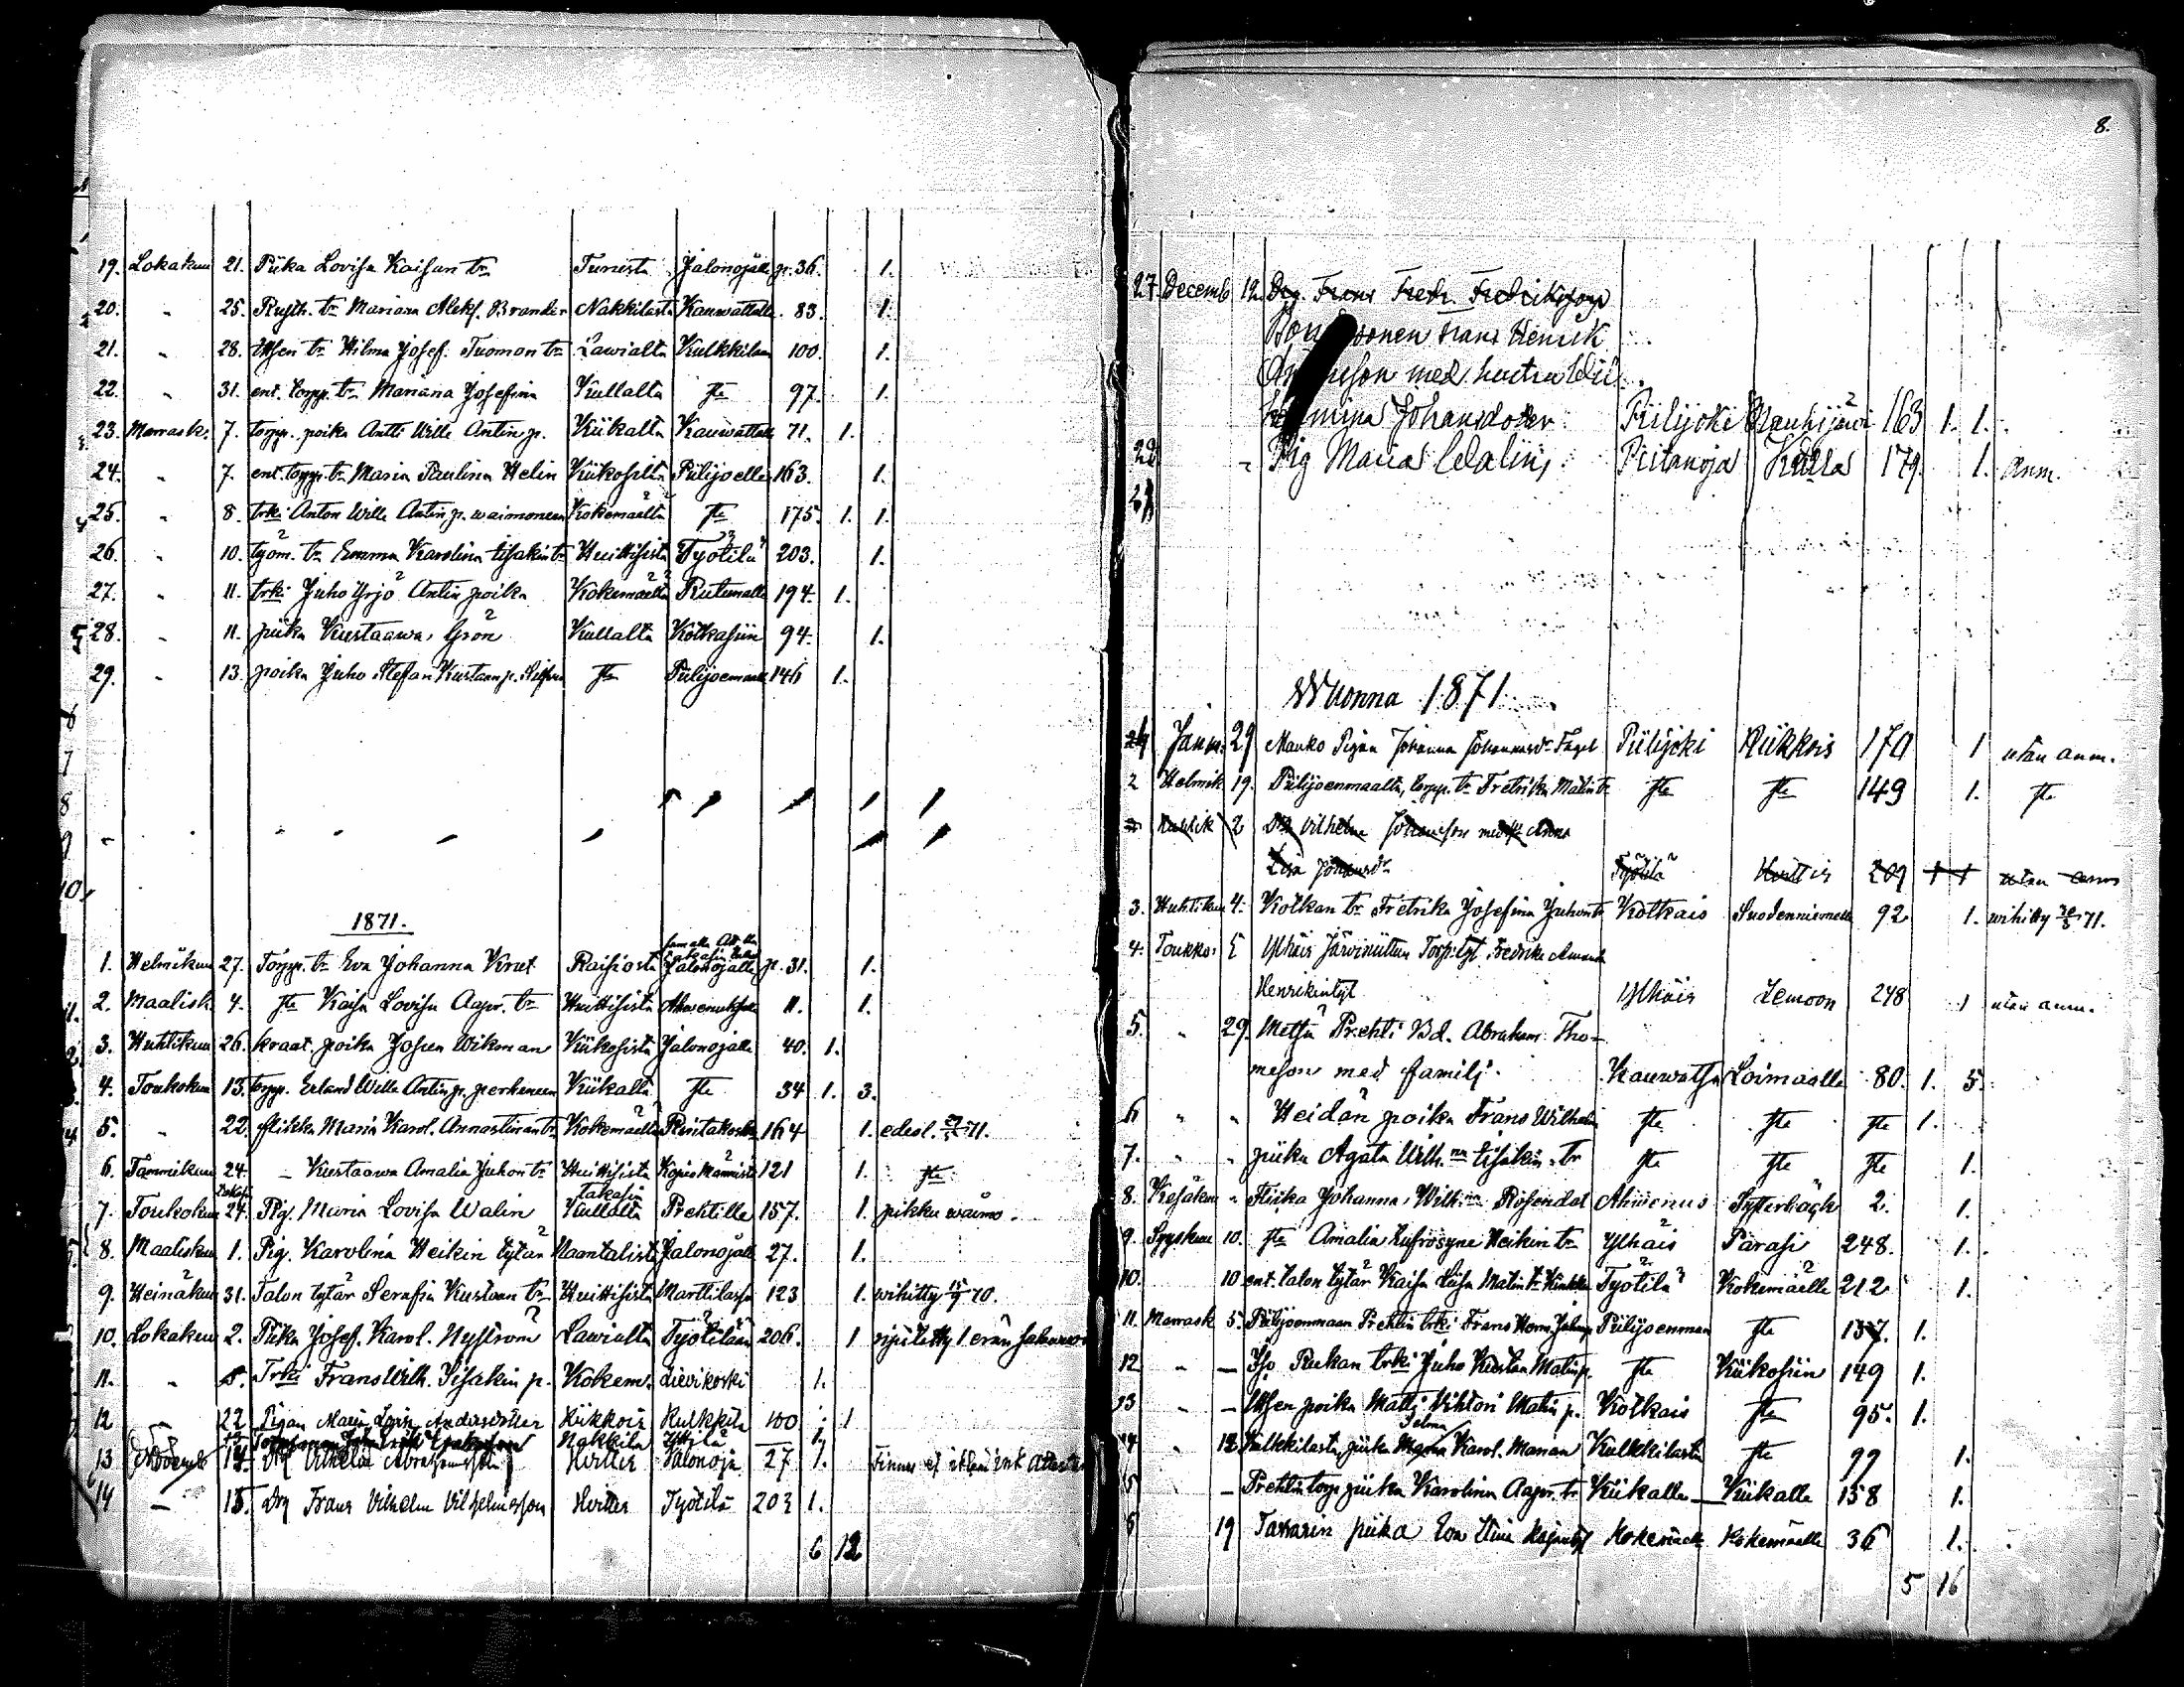 19. Lokakuu 21. Piika Lovisa Kaisan tr. Turusta Jalonojalle p. 36. 1.
20. " 25. Rusth. tr Mariana Aleks. Brander Nakkilasta Kauwattalle 83. 1.
21. " 28. Itsen tr Hilma Josef. Tuomon tr Lawialta Kulkkilaan 100. 1.
22. " 31. ent. torpp. tr Mariana Josefina Kullalta sta 97. 1.
23. Marrask. 7. torpp. poika Antti Wille Antin p. Kiikalta Kauwattalle 71. 1.
24. " 7. ent. torpp. tr Maria Paulina Helin Kiikosilta Piilijoelle 163. 1.
25. " 8. trki Anton Wille Antin p. waimoneen Kokemäeltä sta 175. 1. 1.
26. " 10. työm. tr Emma Karolina Iisakin tr Huittisista Työtilä 203. 1.
27. " 11. trki Juho Yrjö Antin poika Kokemäeltä 194. 1.
28. " 11. piika Kustaawa Grön Kullalta Kolkasiin 94. 1.
29. " 13. poika Juho Stefan Kustaan p. sta Piilijoenmaalle 146 1.
1871.
1. Helmikuu 27. Torpp. tr Eva Johanna Knut Raisiosta Jalonojalle p. 31. 1.
2. Maalisk. 4. sta Kaisa Lovisa Aapr. tr Huittisista 11. 1.
3. Huhtikuu 26. kraat. poika Josua Wikman Kiikosista Jalonojalle 40. 1.
4. Toukokuu 13. torpp. Erland Wille Antin p. perheneen Kiikalta sta 34 1. 3.
5. " 22. flikka Maria Karol. Annastiinan tr Kokemäeltä Rintakoski 164 1. edesl. 71.
6. Tammikuu 24. Kustaawa Amalia Juhon tr Huittisista 121 1. sta
takasin
7. Toukokuu 24. Pig. Maria Lovisa Walin Kullalta Prehtille 157. 1. pikku waimo.
8. Maaliskuu 1. Pig. Karolina Heikin tytär Naantalista Jalonojalle 27. 1.
9. Heinäkuu 31. Talon tytär Serafia Kustaan tr Huittisista Marttilassa 123 1. wihitty 70.
10. Lokakuu 2. Piika Josef. Karol. Nyström Lawialta Työtilään 206. 1
11. " Trki Frans Wilh. Iisakin p. Kokem. Lievikoski 1.
12 22 Pigan Maria Lovis. Andersdotter Kiikkois Kulkkila 100 1
Nakkila Yttilä 1.
13 Novemb 14. Drg Vilhelm Abrahamsson Hvittis Jalonoja 27 1.
14 — 15. Drg Frans Vilhelm Vilhelmsson Hvittis Työtilä 203 1.
6 12
8.
27. Decemb 12. Drg. Frans Fredr. Fredriksson
Bondesonen Frans Henrik
med hustru
mina Johansdotter Piilijoki Mauhijärvi 163 1. 1.
28 Pig Maria Walin Piitanoja Kulla 179. 1. anm.
Wuonna 1871.
Janu. 29 Mauko Pigan Johanna Johannesdr Fagel Piilijoki Kiikkois 170 1 utan anm.
2 Helmik 19. Piilijoenmaalta, torpp. tr Fretrika Matin tr sta sta 149 1. sta
Huhtik 2 Drg Vilhelm Johansson med h. Anna
Lisa Johansdr Työtilä Huittis 209 1 1 utan anm
3. Huhtikuu 4. Kolkan tr Fretrika Josefina Juhon tr Kolkais Suodenniemelle 92 1. wihitty 71.
4. Toukko. 5 Ylhäis Järviniittun Torp. tyt. Fredrika Amanda
Henrikintyt Ylhäis Lemoon 248 1 utan anm.
5. " 29. Metsä Prehti Bd. Abraham Tho-
meson med familj. Kauwatsa Loimaalle 80. 1. 5.
6 " " Heidän poika Frans Wilhelm sta sta sta 1.
7. " " piika Agata Wilh.na Iisakin tr sta sta sta 1.
8. Kesäkuu " Flikka Johanna Wilh.na Rosendal Ahwenus Systerbäck 2. 1.
9. Syyskuu 10. sta Amalia Eufrosyne Heikin tr Ylhäis Parasi 248. 1.
10. 10 ent. talon tytär Kaisa Liisa Matin tr Työtilä Kokemäelle 212 1.
11. Marrask 5. Piilijoenmaan Prehtin trki Frans Herm. Piilijoenmaa sta 137. 1.
12 " — Iso Rukan trki Juho Kustaa Matin p. sta Kiikosiin 149 1.
13 " — Itsen poika Matti Vihtori Matin p. Kolkais sta 95. 1.
Selma
14 " 12 Kulkkilasta, piika Maria Karol. Marian Kulkkilasta sta 99 1.
5 — Prehtin torp piika Karolina Aapr. tr Kiikalle — Kiikalle 158 1.
6 19 Tassarin piika Eva Stina Kokemäelle Kokemäelle 36 1.
5 16